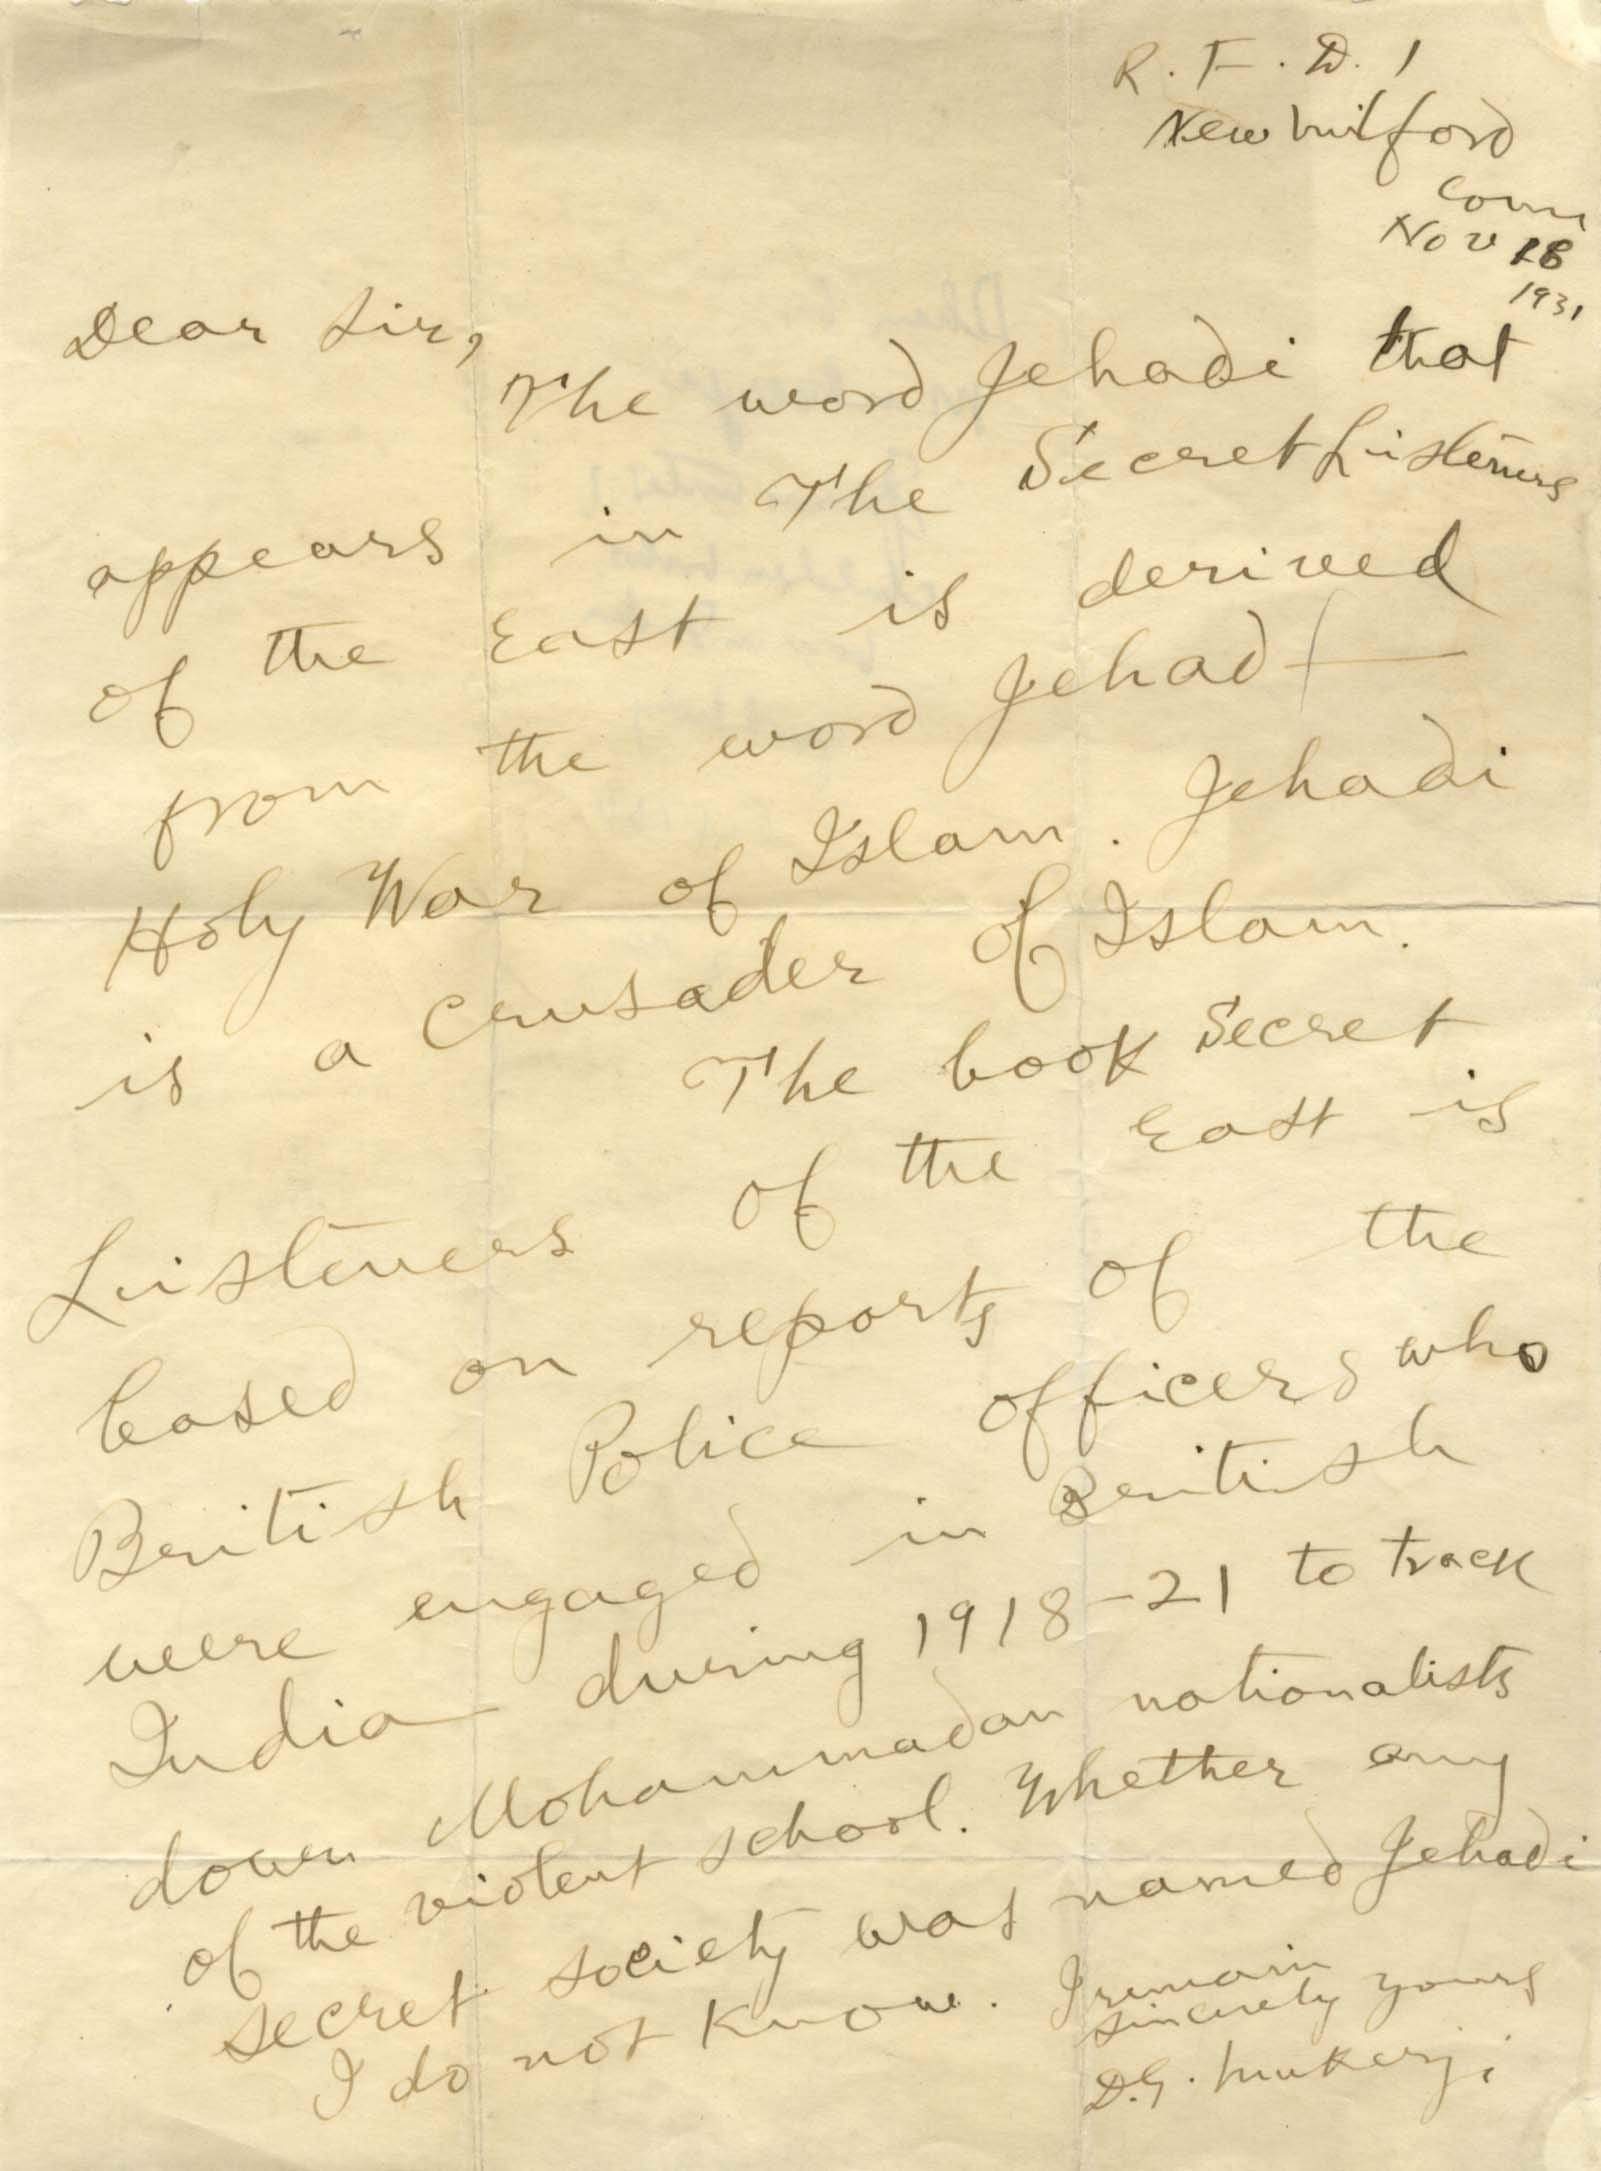 R. F. D. 1
New Milford
Conn
Nov 18
1931
Dear Sir,
The word Jehadi that
appears in The Secret Listeners
of the East is derived
from the word Jehad —
Holy War of Islam. Jehadi
is a crusader of Islam.
The book Secret
Listeners of the East is
based on reports of the
British Police officers who
were engaged in British
India during 1918-21 to track
down Mohammadan nationalists
of the violent school. Whether any
secret society was named Jehadi
I do not know. I remain
sincerely yours
D.G. Mukerji